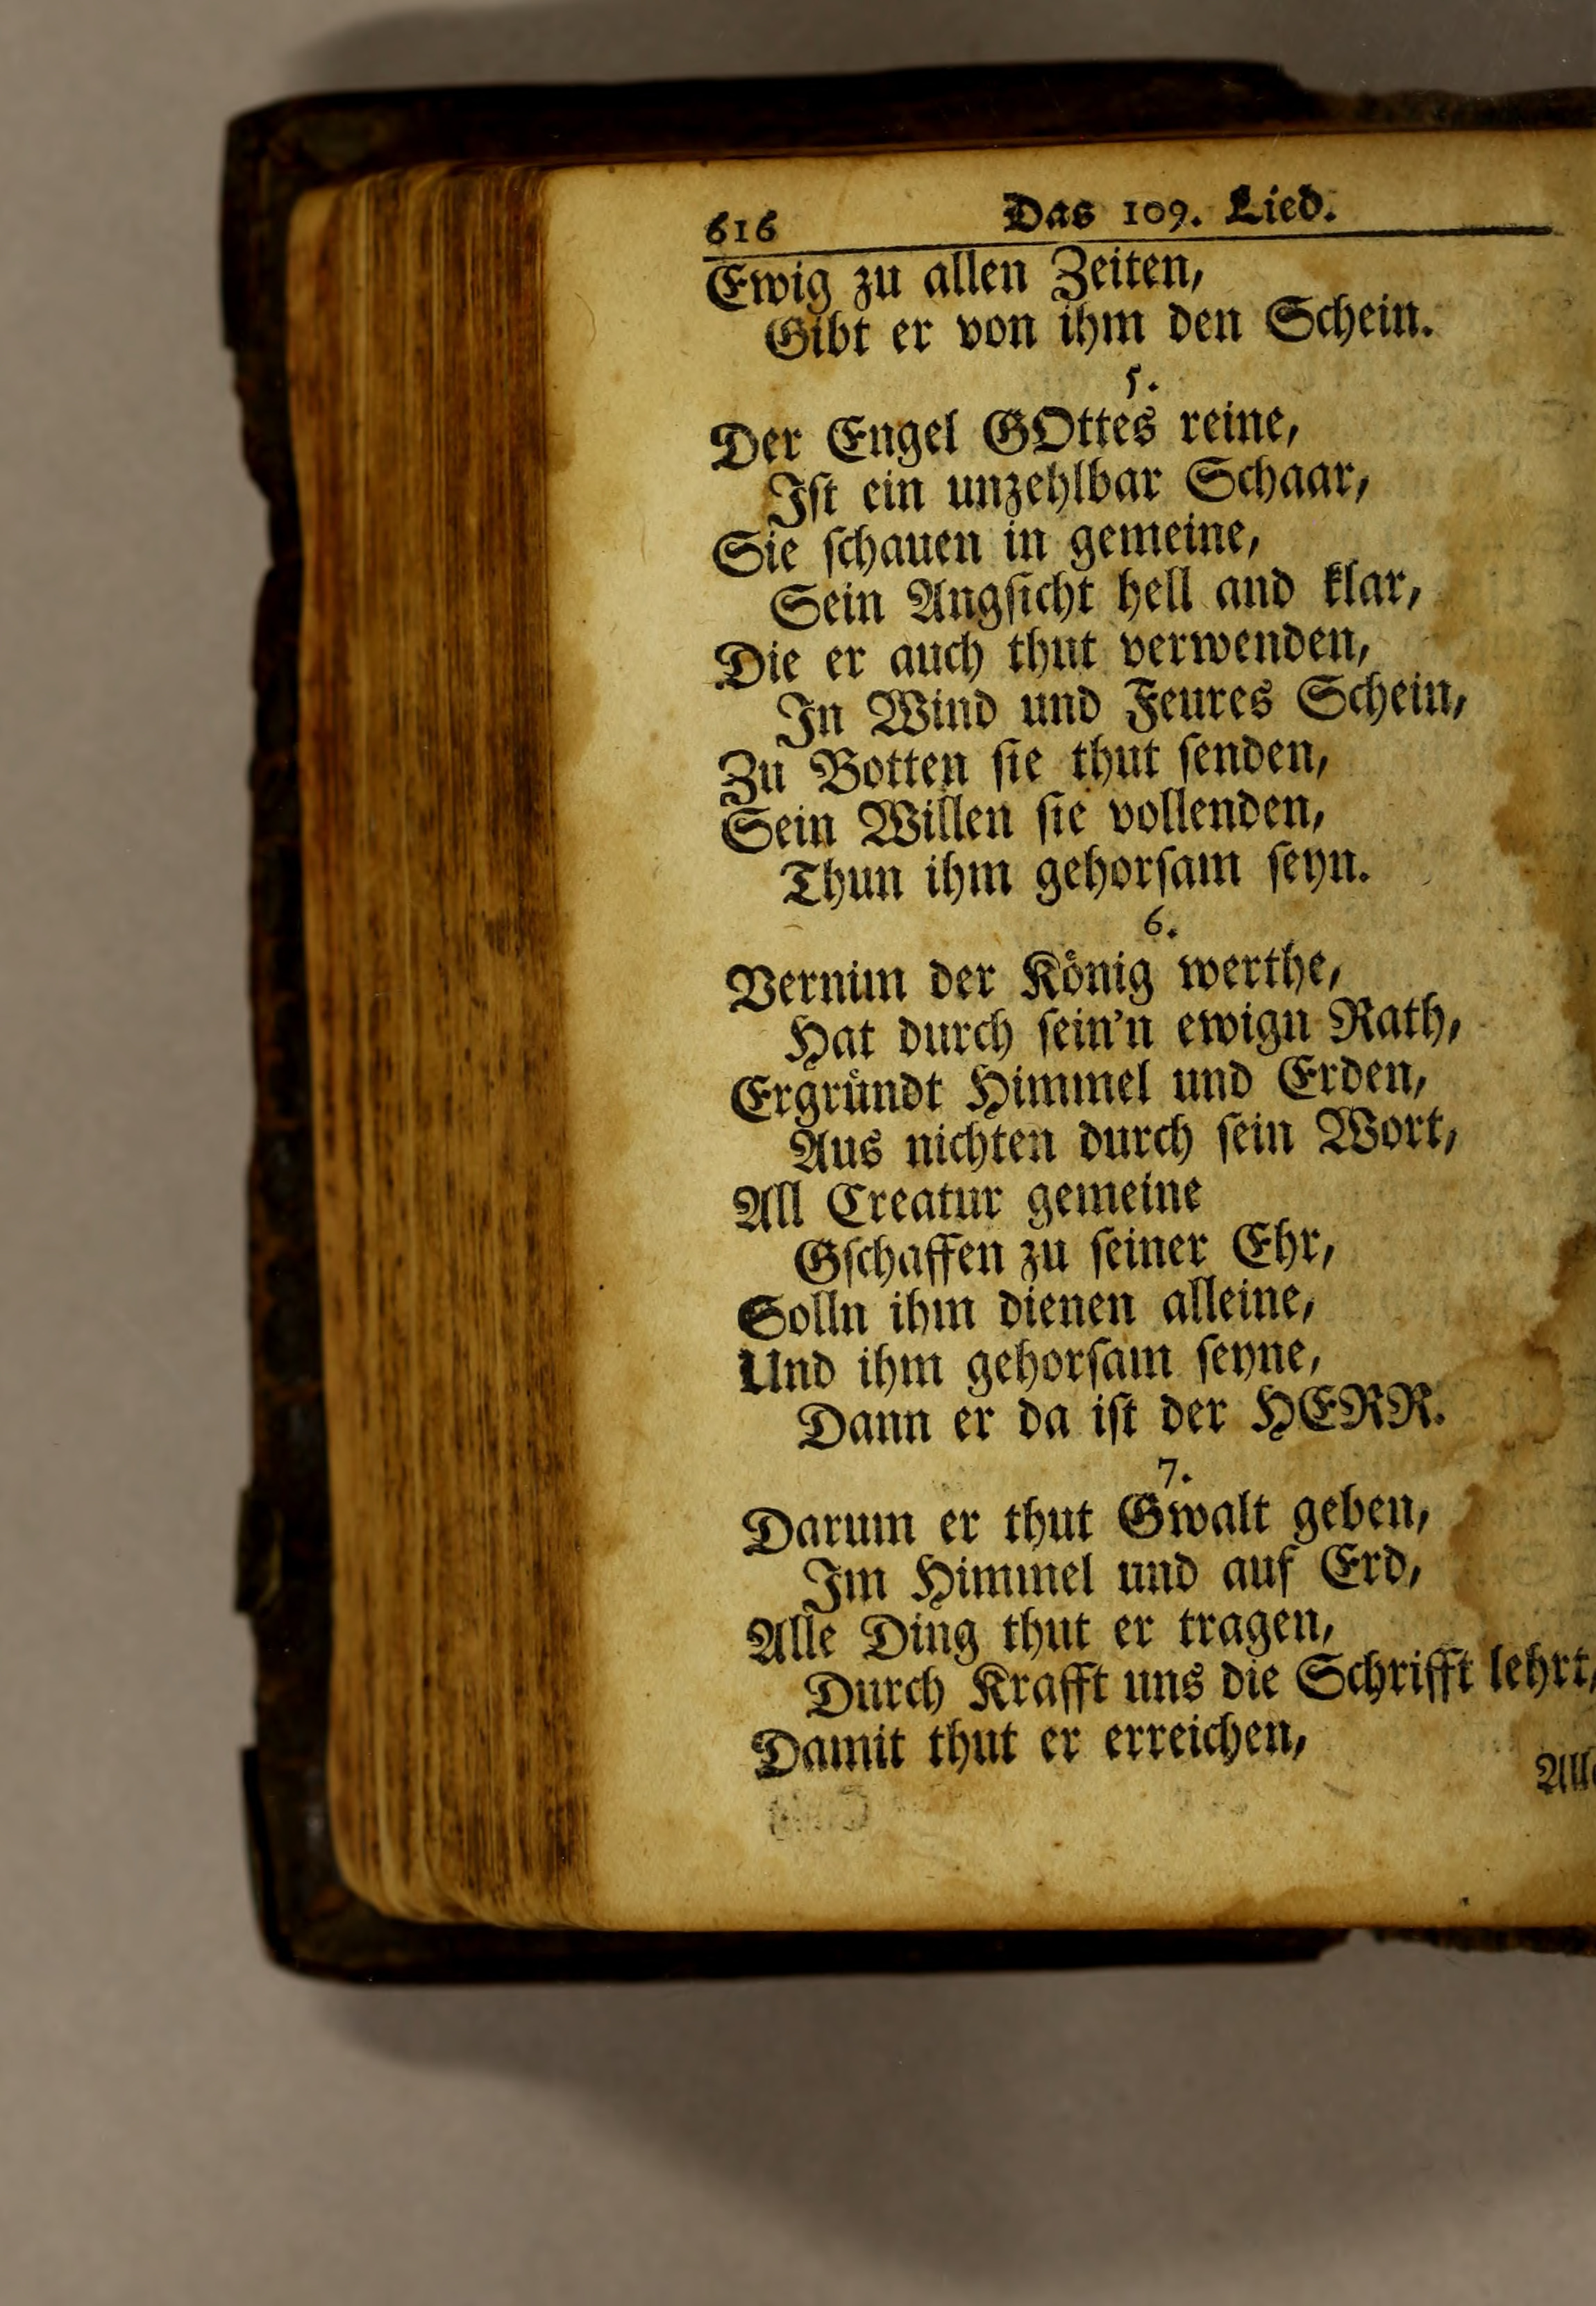 616 Das 109. Lied.
Ewig zu allen Zeiten,
Gibt er von ihm den Schein.
5.
Der Engel GOttes reine,
Ist ein unzehlbar Schaar,
Sie schauen in gemeine,
Sein Angsicht hell and klar,
Die er auch thut verwenden,
In Wind und Feures Schein,
Zu Botten sie thut senden,
Sein Willen sie vollenden,
Thun ihm gehorsam seyn.
6.
Vernim der König werthe,
Hat durch sein'n ewign Rath,
Ergründt Himmel und Erden,
Aus nichten durch sein Wort,
All Creatur gemeine
Gschaffen zu seiner Ehr,
Solln ihm dienen alleine,
Und ihm gehorsam seyne,
Dann er da ist der HERR.
7.
Darum er thut Gwalt geben,
Im Himmel und auf Erd,
Alle Ding thut er tragen,
Durch Krafft uns die Schrifft lehrt,
Damit thut er erreichen,